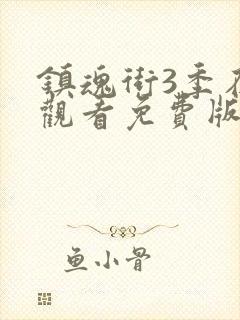 鎮魂街3季在
觀看免費版
鱼小骨